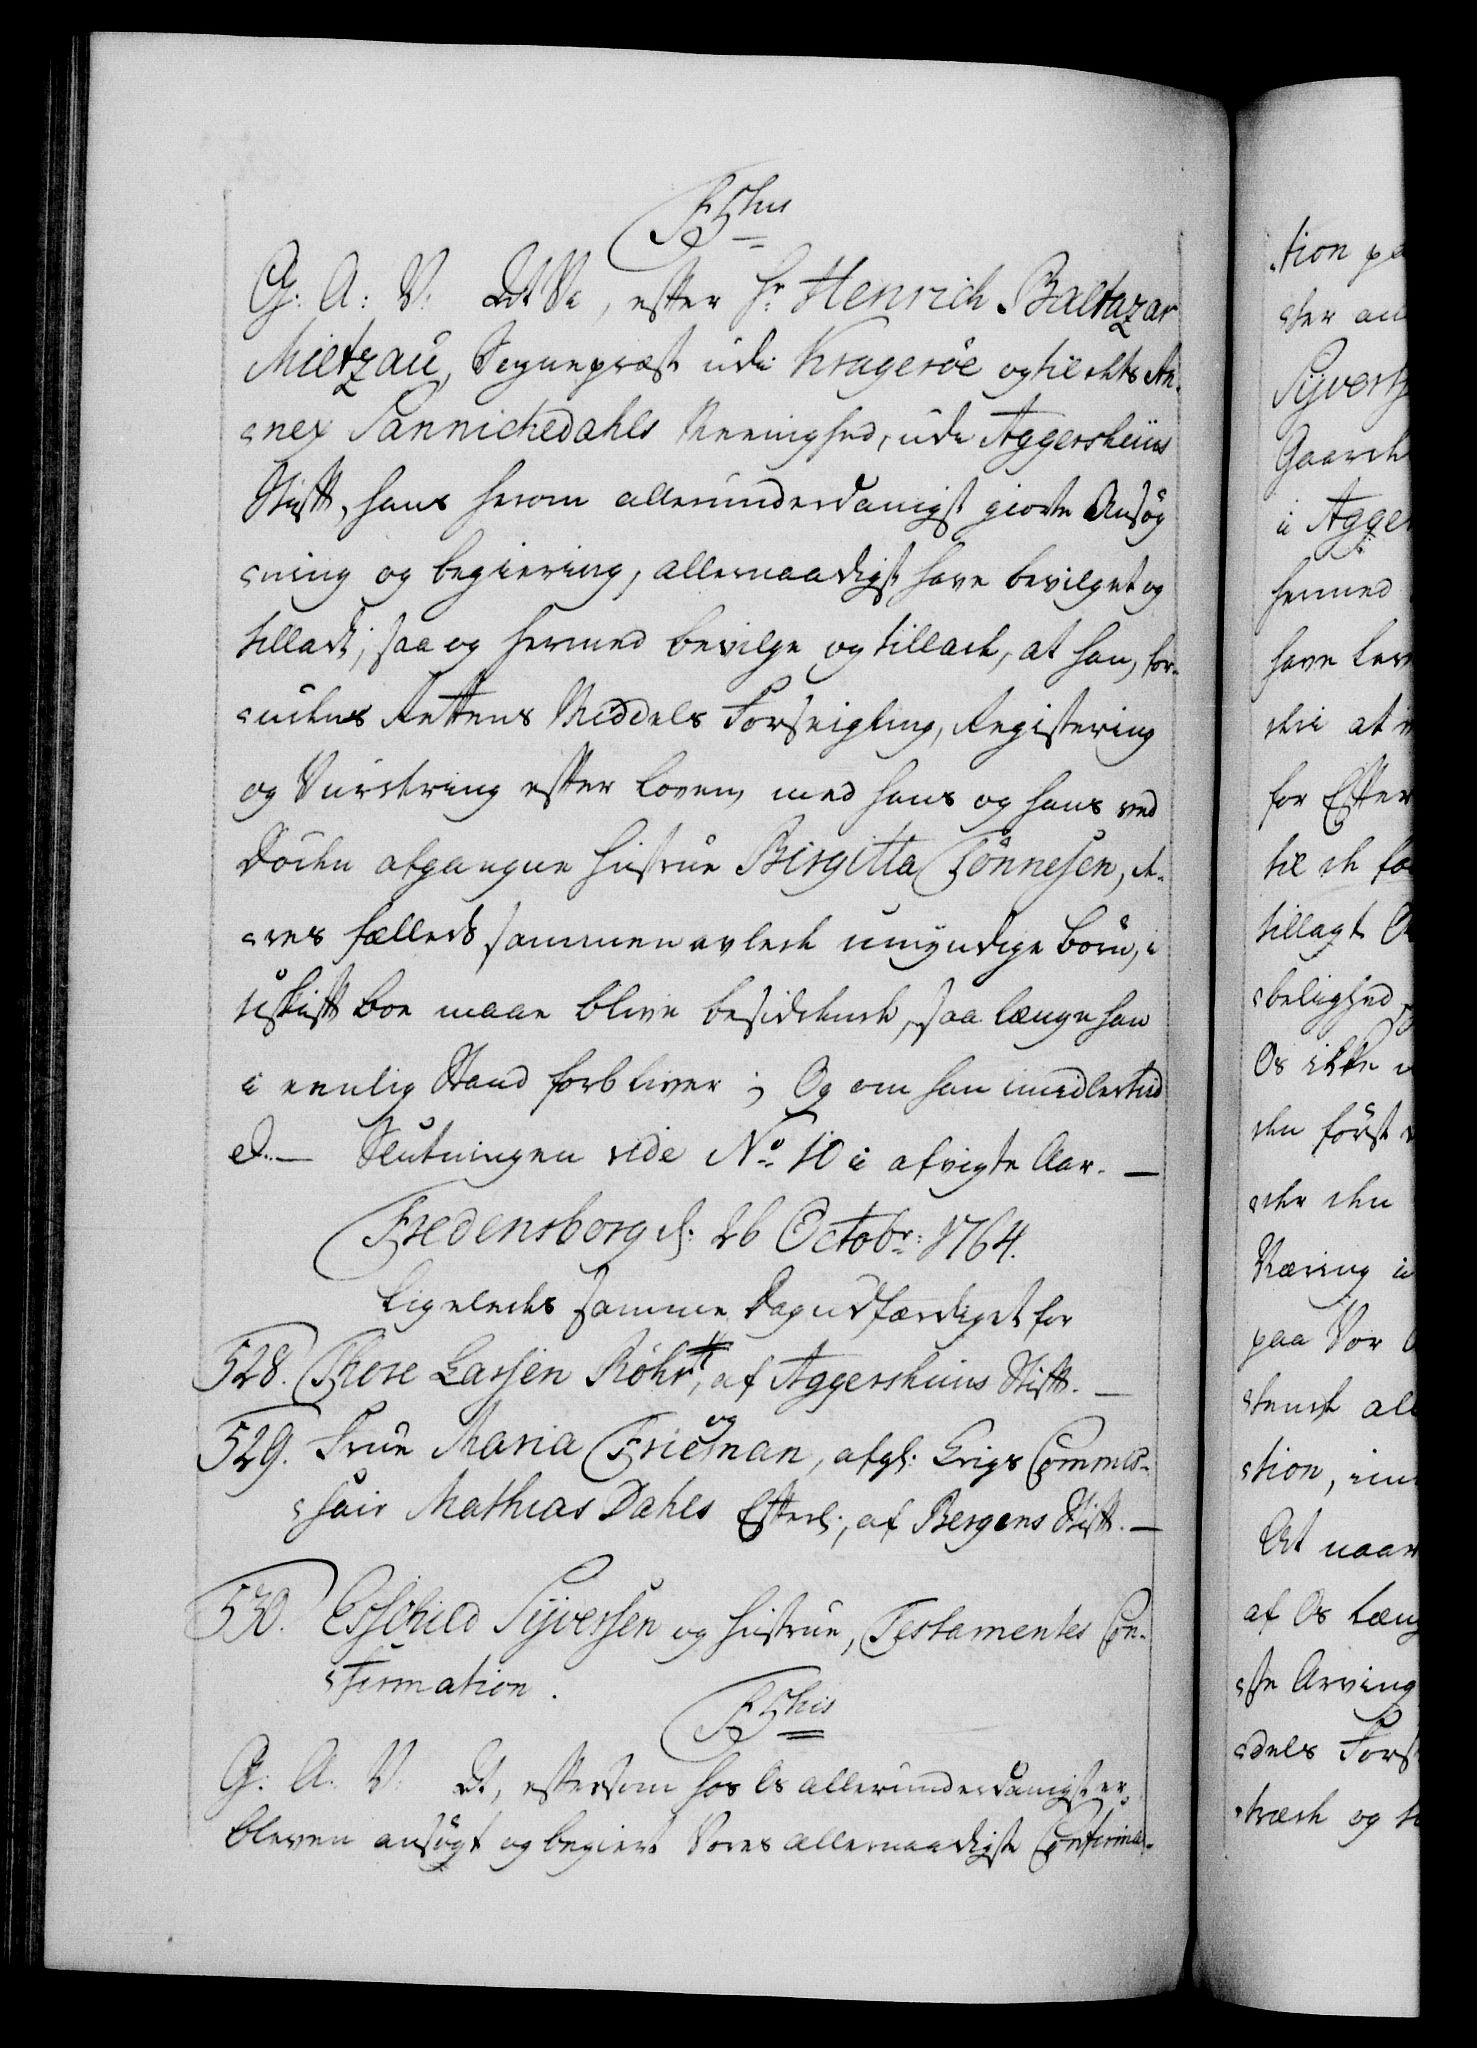 F 5tus
G: A: V: Dt Vi, efter Hr Henrich Baltazar
Mietzau, Sognepræst udi Kragerøe og til dets An-
nex Sannichedahls Meenighed, udi Aggershuus
Stift, hans herom allerunderdanigst giorte Ansøg
ning og begiering, allernaadigst have bevilget og
tilladt; saa og hermed bevilge og tillade, at han, for-
uden Rettens Middels Forseigling, Registering
og Vurdering efter Loven, med hans og hans ved
Døden afgangne Hustrue Birgitta Tönnesen, de-
res fælleds sammen avlede umyndige børn, i
uskift boe maae blive besiddende, saa længe han
i eenlig Stand forbliver; Og om han imidlertid
&.— Slutningen vide No 10 i afvigte Aar.—
Fredensborg d: 26 Octobr: 1764.
Ligeledes samme Dag udfærdiget for
528. Thore Larsen Röhrt, af Aggershuus Stift.—
529. Frue Maria Friegman, afgl: Krigs Commis-
sair Mathias Dahls Efterl:, af Bergens Stift.—
530. Esschild Syversen og Hustrue, Testamentes Con-
firmation.
F 5tus
G: A: V: Dt, eftersom hos Os allerunderdanigst er
bleven ansøgt og begiert Vores allernaadigste Confirma-
tion pa
Sÿverts
Gaard
i Agger
hermed
have
det at
for Efter
til de
tillagt
belighed
Os ikke
den først
der den
Næring i
paa Vor
stende al
tion,
At naar
af Os
ste Arving
dels Fors
træde og